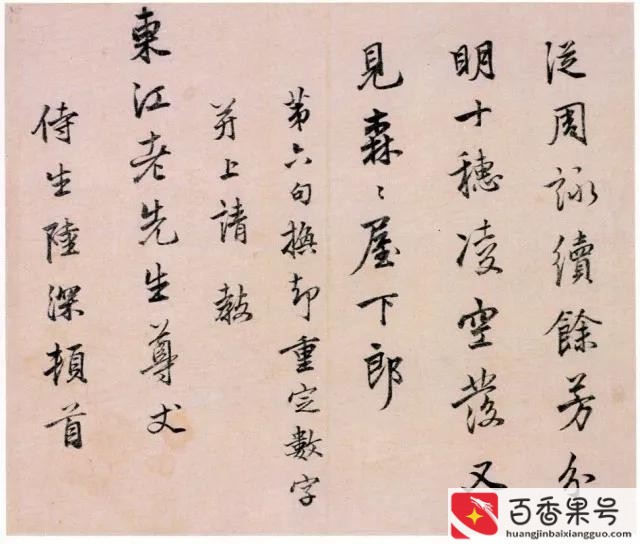 從周詠續餘芳分
明十穗凌空發又
見森〻屋下郎
第六句撫却重定數字
并上請教
東江老先生尊丈
侍生陸深頓首
百香果号
huangjinbaixiangguo.com